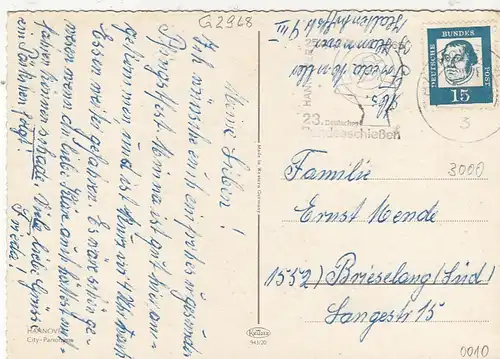 G2968
Meine Lieben!
Ich wünsche euch ein frohes u. gesundes
Pfingstfest. Minna ist gut hier an-
gekommen und ist von
Essen weiter gefahren. Es wäre schön ge-
wesen wenn du liebe Käte auch hättest mit
fahren können schade. Viele liebe Grüsse
Frieda!
ein Päckchen folgt!
HANNOVER
City-Panorama
Made in Western Germany
Krüger
943/20
Abs.
Frieda
Hannover
23. Deutsches
Bundesschießen
DEUTSCHE BUNDESPOST
15
3
3000
Familie
Ernst Mende
1552) Brieselang (Süd)
Langestr 15
0010